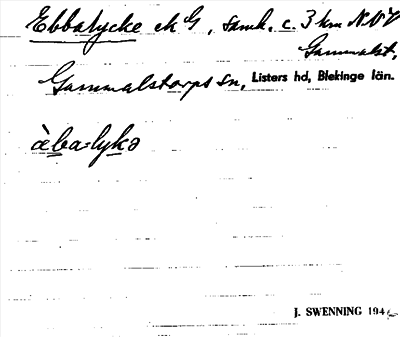 Ebbalycke ek G, samh. c. 3 km NNV
Gammalst.
Gammalstorps sn, Listers hd, Blekinge län.
àba-lykə
J. SWENNING 194